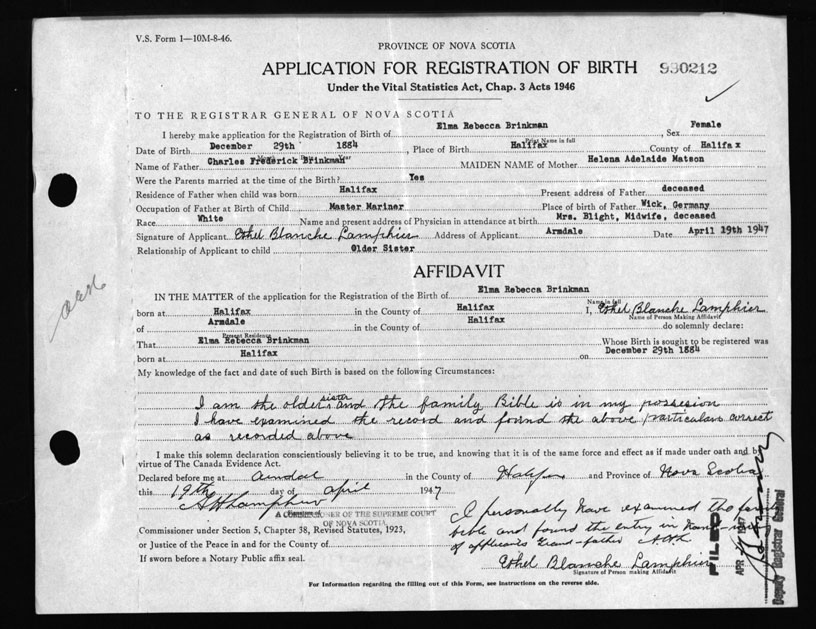 V.S. Form 1—10M-8-46.
PROVINCE OF NOVA SCOTIA
APPLICATION FOR REGISTRATION OF BIRTH 930212
Under the Vital Statistics Act, Chap. 3 Acts 1946
TO THE REGISTRAR GENERAL OF NOVA SCOTIA
I hereby make application for the Registration of Birth of Elma Rebecca Brinkman, Sex Female
Print Name in full
Date of Birth December 29th 1884, Place of Birth Halifax County of Halifax
Month Year
Name of Father Charles Frederick Brinkman MAIDEN NAME of Mother Helena Adelaide Matson
Were the Parents married at the time of the Birth? Yes
Residence of Father when child was born Halifax Present address of Father deceased
Occupation of Father at Birth of Child Master Mariner Place of birth of Father Wick, Germany
Race White Name and present address of Physician in attendance at birth Mrs. Blight, Midwife, deceased
Signature of Applicant Ethel Blanche Lamphier Address of Applicant Armdale Date April 19th 1947
Relationship of Applicant to child Older Sister
AFFIDAVIT
IN THE MATTER of the application for the Registration of the Birth of Elma Rebecca Brinkman
Name in full
born at Halifax in the County of Halifax I, Ethel Blanche Lamphier
Name of Person Making Affidavit
of Armdale in the County of Halifax do solemnly declare:
Present Residence
That Elma Rebecca Brinkman Whose Birth is sought to be registered was
born at Halifax on December 29th 1884
My knowledge of the fact and date of such Birth is based on the following Circumstances:
I am the older sister and the family Bible is in my possesion
I have examined the record and found the above particulars correct
as recorded above
I make this solemn declaration conscientiously believing it to be true, and knowing that it is of the same force and effect as if made under oath and by
virtue of The Canada Evidence Act.
Declared before me at Armdale in the County of Halifax and Province of Nova Scotia
this 19th day of April 1947
A COMMISSIONER OF THE SUPREME COURT
OF NOVA SCOTIA
Commissioner under Section 5, Chapter 38, Revised Statutes, 1923,
or Justice of the Peace in and for the County of
If sworn before a Notary Public affix seal.
I personally have examined the family
bible and found the entry in
of applicants Grand-father
Ethel Blanche Lamphier
Signature of Person making Affidavit
FILED
APR
Deputy Registrar General
For Information regarding the filling out of this Form, see instructions on the reverse side.